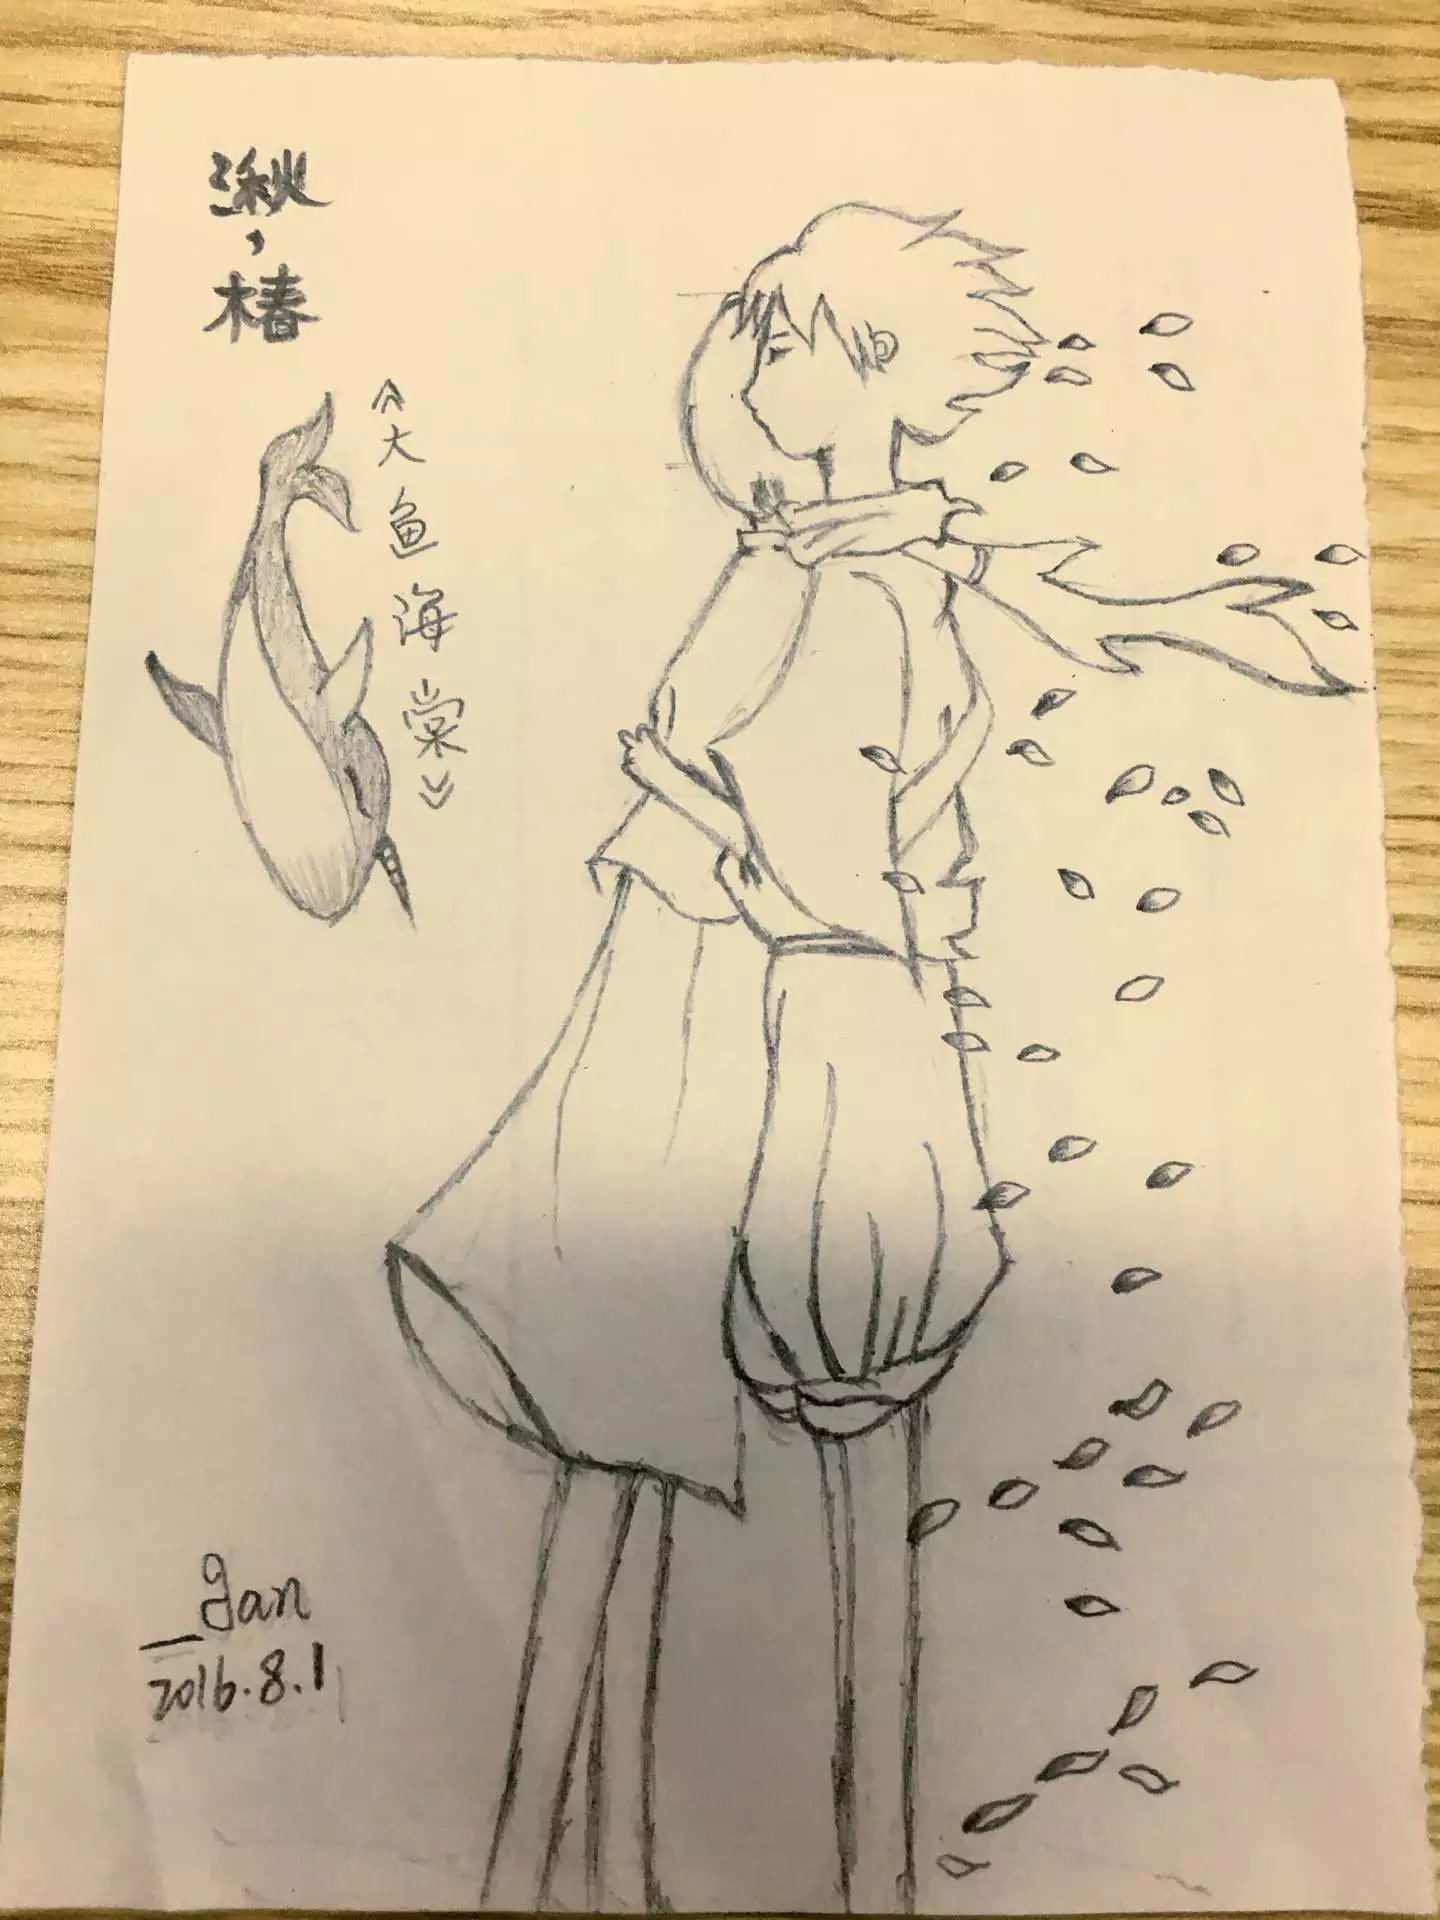 湫，椿
《大鱼海棠》
Jan
2016.8.1